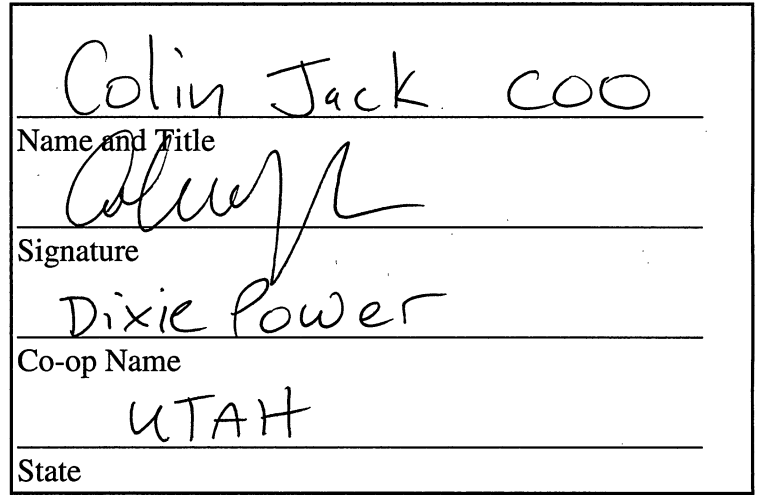 Colin Jack COO
Name and Title
Signature
Dixie Power
Co-op Name
UTAH
State